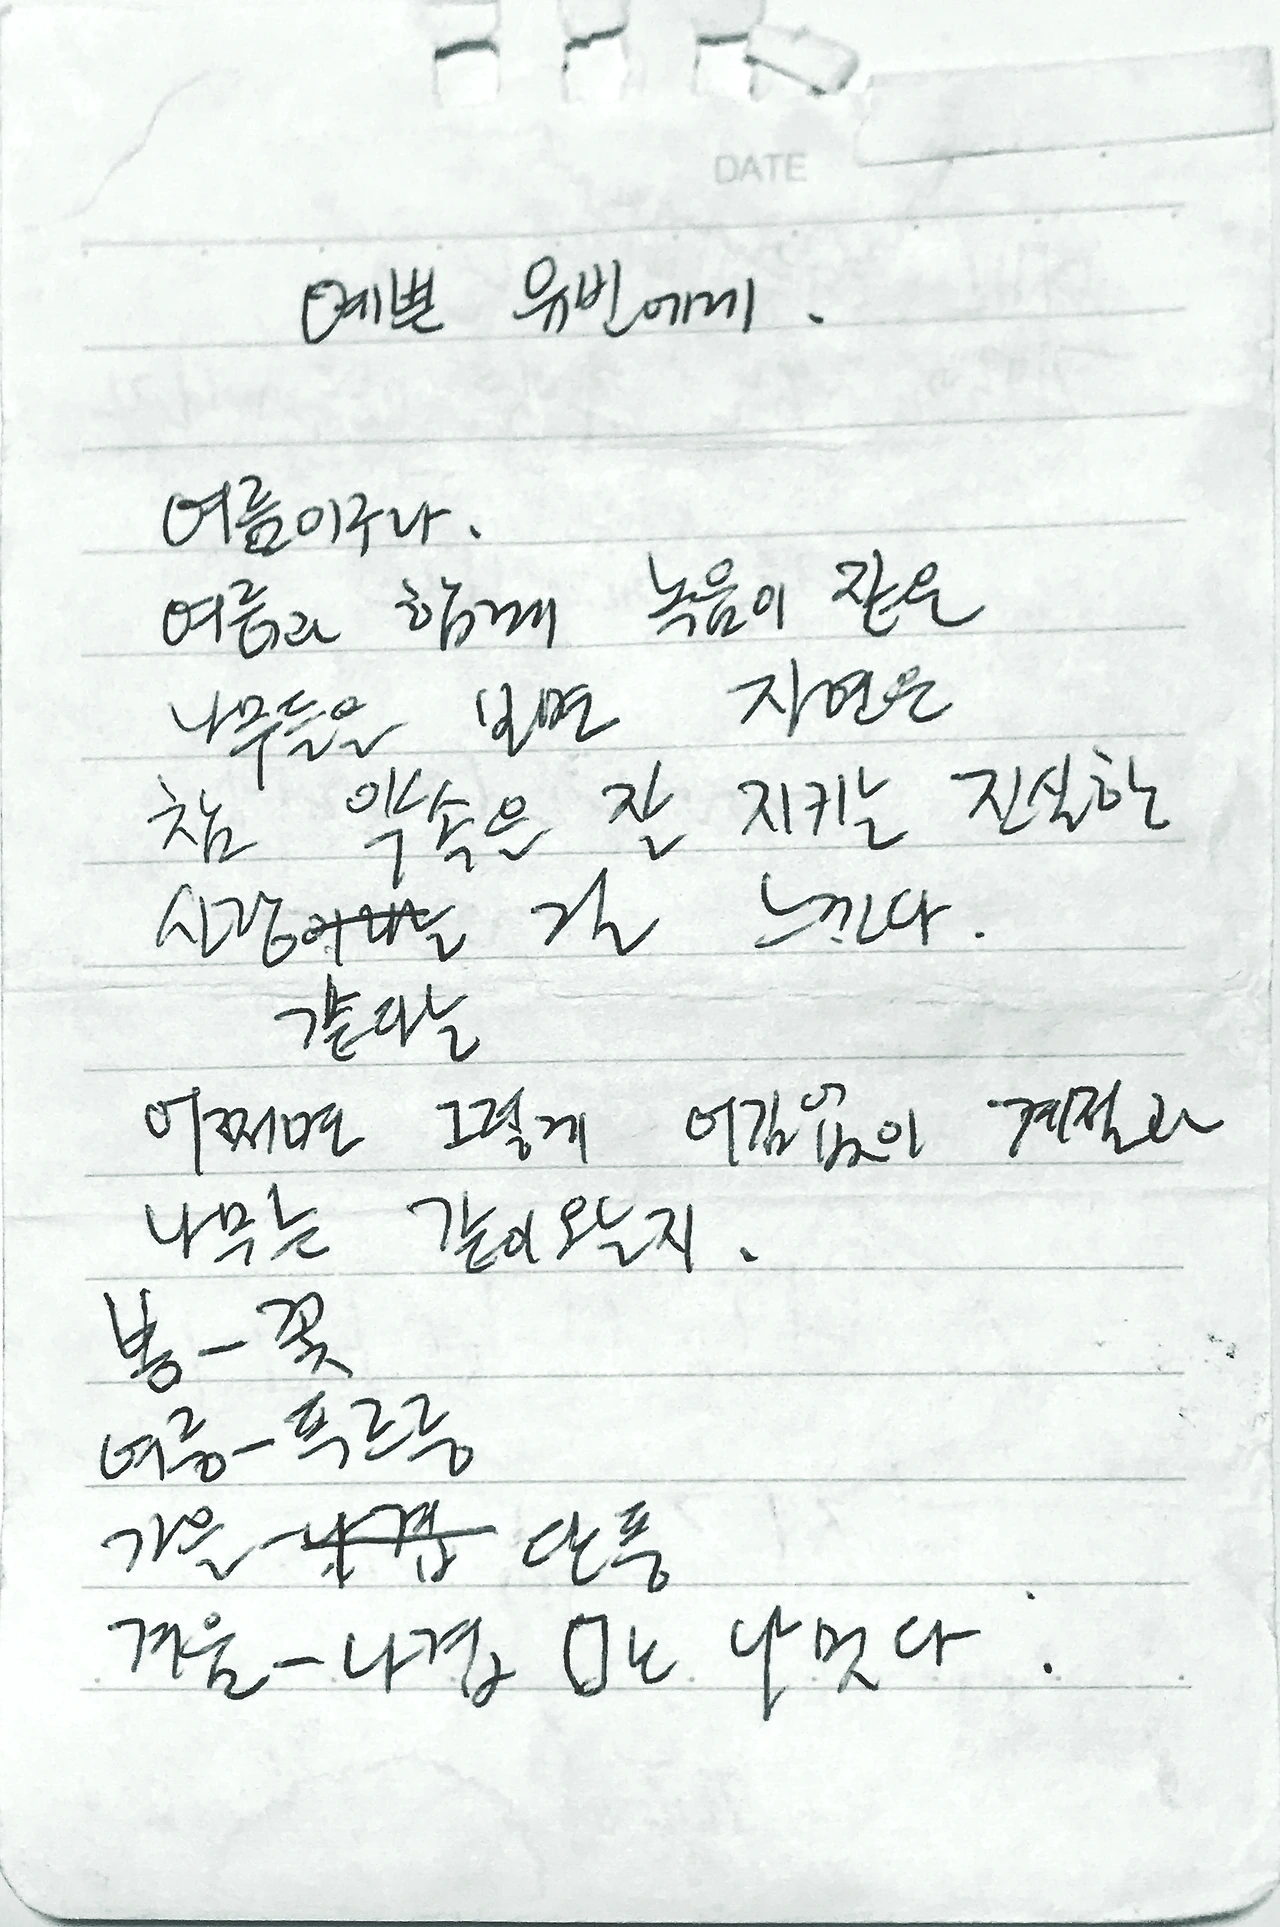 DATE
예쁜 유빈에게.
여름이구나.
여름과 함께 녹음이 짙은
나무들을 보면 자연은
참 약속은 잘 지키는 진실한
신랑 걸 느낀다.
같다는
어쩌면 그렇게 어김없이 계절과
나무는 같이 오는지.
봄-꽃
여름-푸르름
가을-나겹 단풍
겨울-나겹 는 낙엇다.